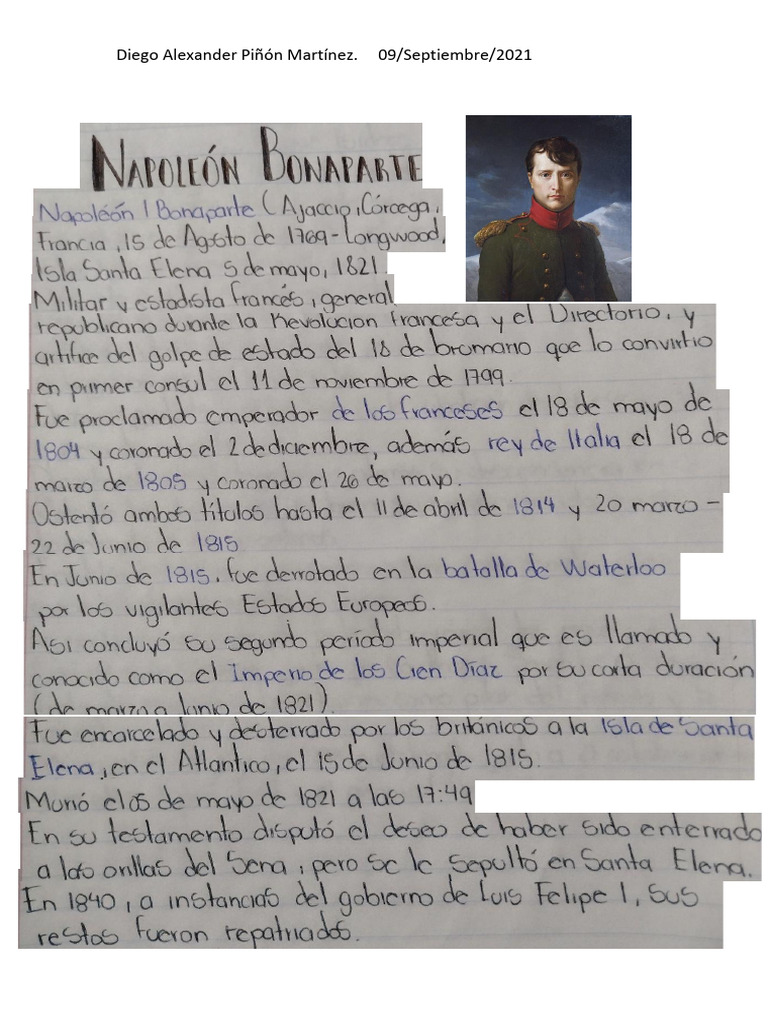 Diego Alexander Piñón Martínez. 09/Septiembre/2021
NAPOLEÓN BONAPARTE
Napoléón I Bonaparte (Ajaccio, Córcega,
Francia, 15 de Agosto de 1769-Longwood,
Isla Santa Elena 5 de mayo, 1821.
Militar y estadista francés, general
republicano durante la Revolucion francesa y el Directorio, y
artifice del golpe de estado del 18 de brumario que lo convirtio
en primer consul el 11 de noviembre de 1799.
Fue proclamado emperador de los franceses el 18 de mayo de
1804 y coronado el 2 de diciembre, además rey de Italia el 18 de
marzo de 1805 y coronado el 26 de mayo.
Ostentó ambos títulos hasta el 11 de abril de 1814 y 20 marzo -
22 de Junio de 1815
En Junio de 1815, fue derrotado en la batalla de Waterloo
por los vigilantes Estados Europeos.
Asi concluyó su segundo período imperial que es llamado y
conocido como el Imperio de los Cien Diaz por su corta duración
(de marzo a Junio de 1821).
Fue encarcelado y desterrado por los británicos a la Isla de Santa
Elena, en el Atlantico, el 15 de Junio de 1815.
Murió el 05 de mayo de 1821 a las 17:49
En su testamento disputó el deseo de haber sido enterrado
a las orillas del Sena, pero se le sepultó en Santa Elena.
En 1840, a instancias del gobierno de Luis Felipe I, sus
restos fueron repatriados.